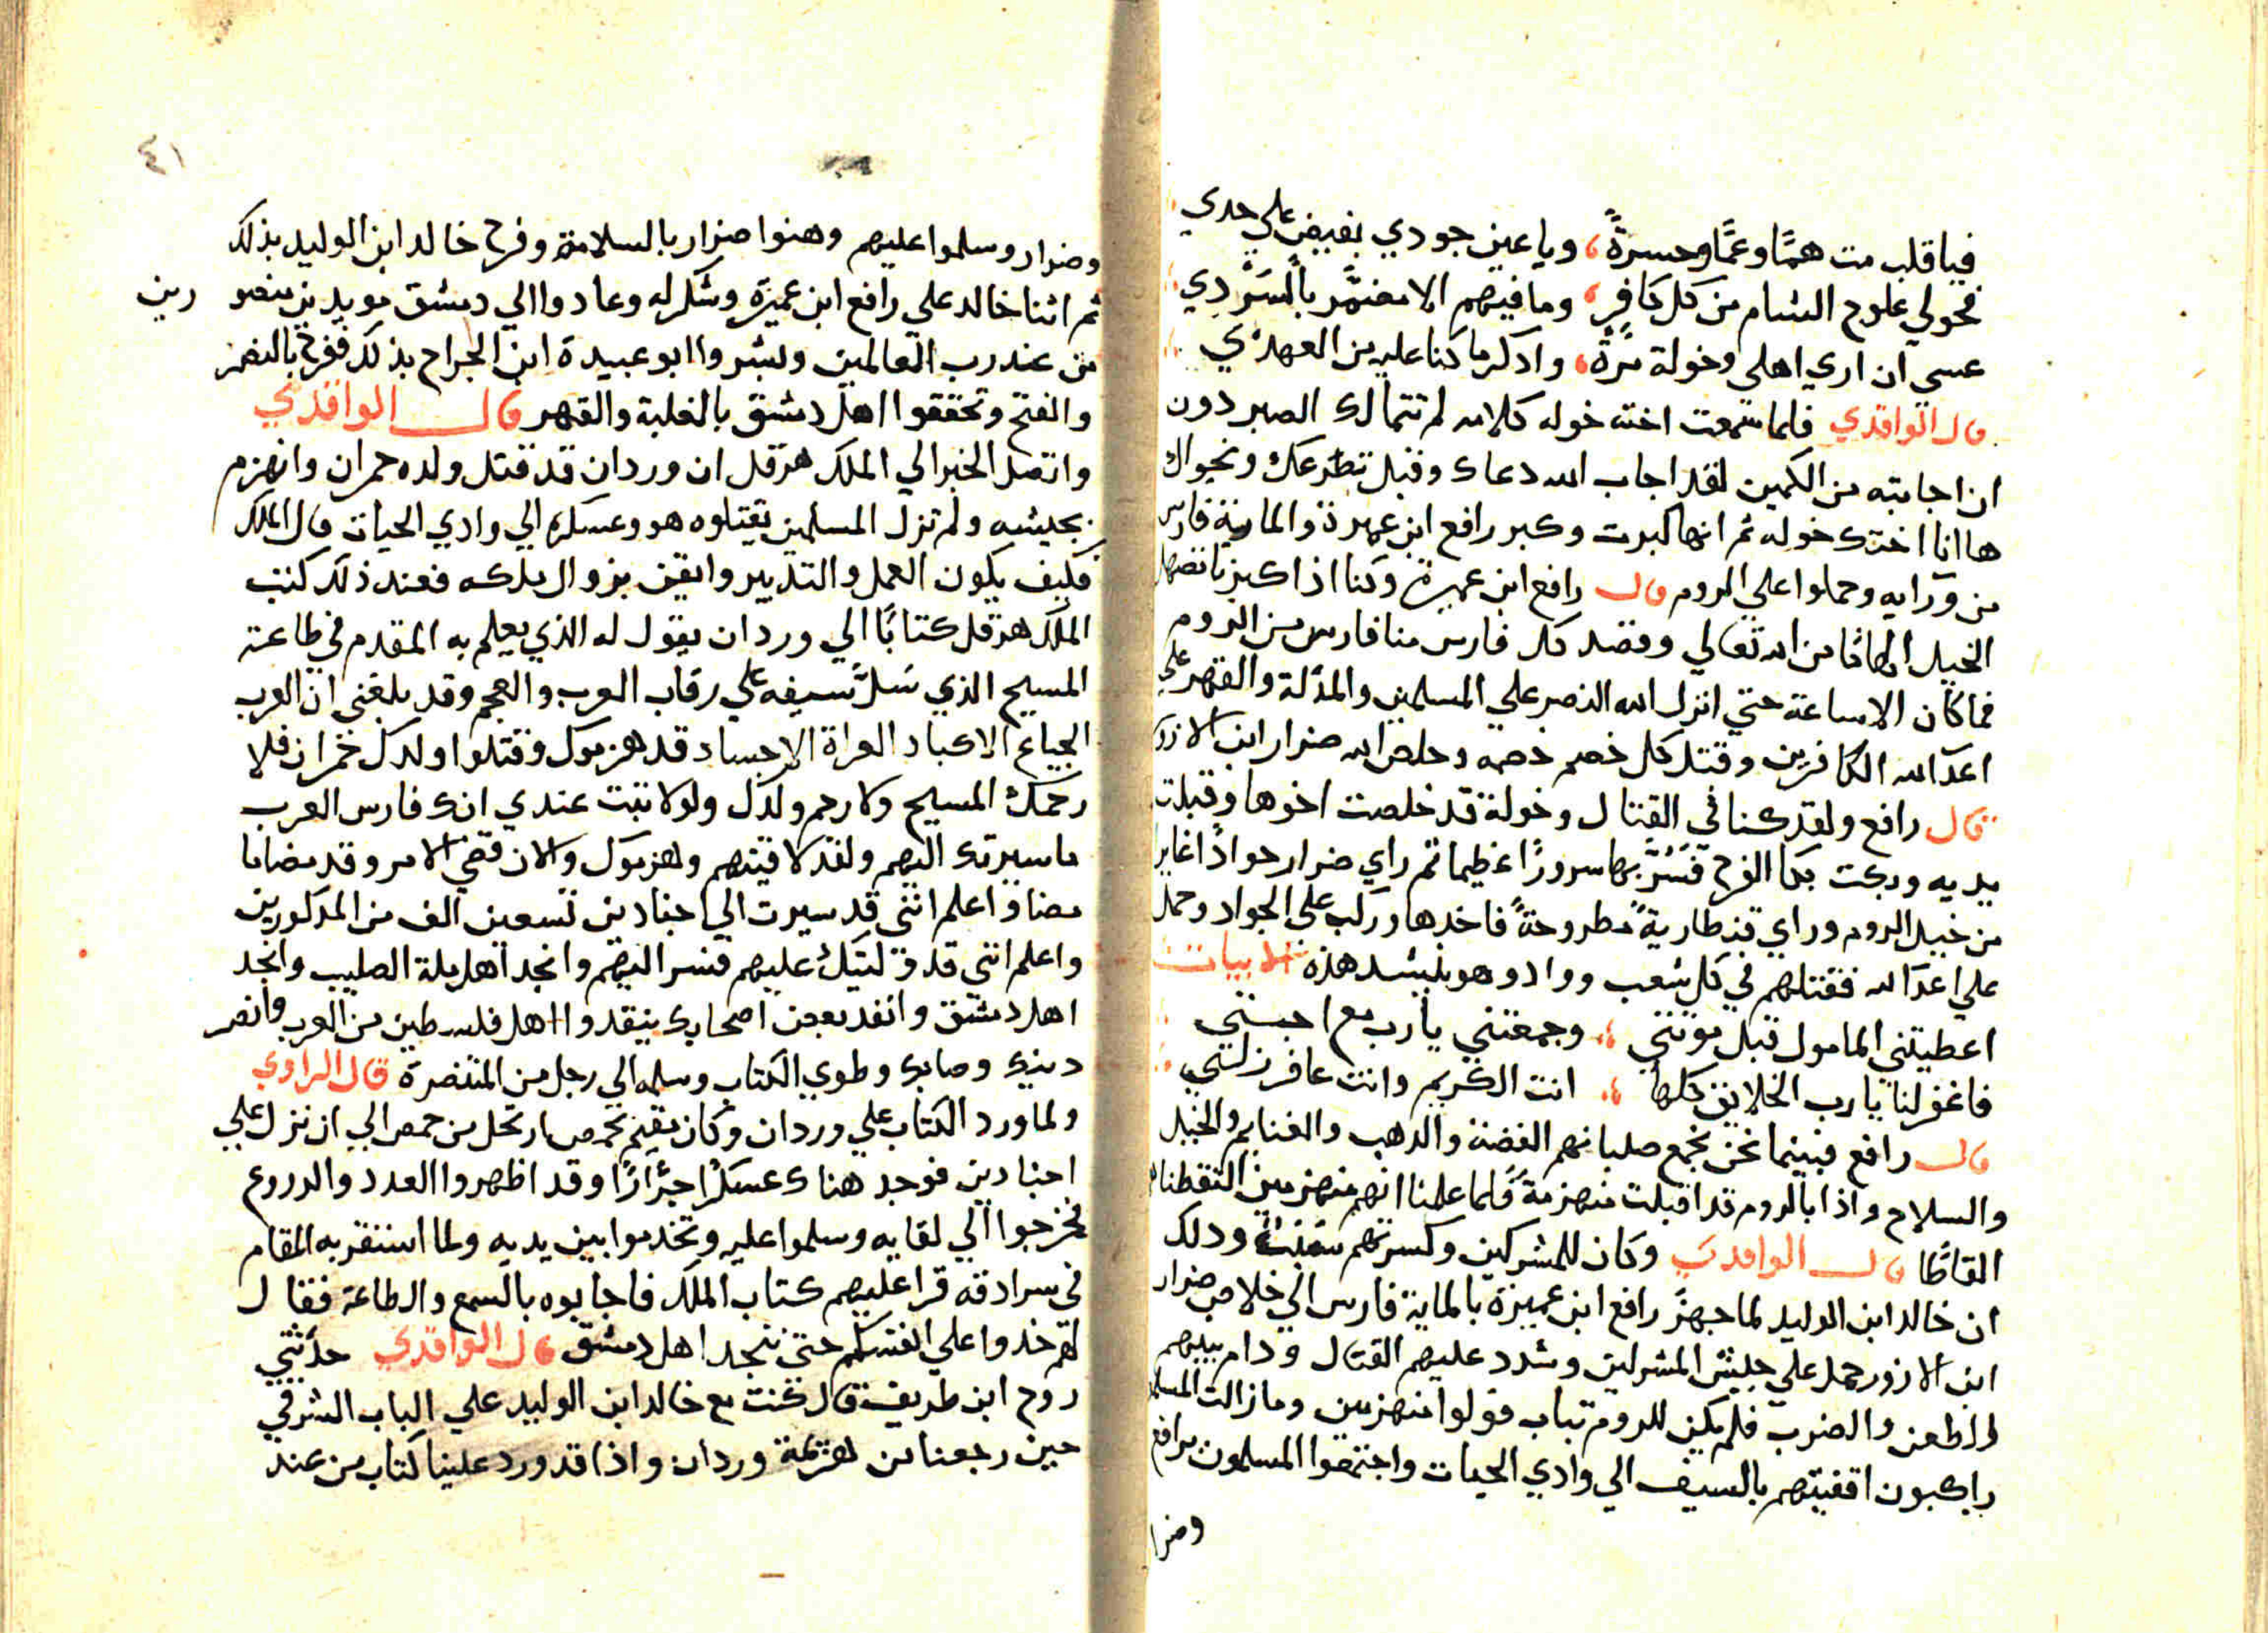 فيا قلب مت همًّا وغمًّا وحسرةً، ويا عين جودي بفيض علي خدي
فحولي علوج الشام من كل كافر، وما فيهم الا مضمَّر بالسَرْدي
عسي ان اري اهلي وخولة مرَّةً، واذكر ما كنا عليه من العهدي
قال الواقدي فلما سمعت اخته خوله كلامه لم تتمالك الصبر دون
ان اجابته من الكمين لقد اجاب الله دعاك وقبل تضرعك ونجواك
ها انا اختك خوله ثم انها كبرت وكبر رافع ابن عميرة والماية فارس
من ورايه وحملوا علي الروم قال رافع ابن عميرة وكنا اذا كبرنا تصهل
الخيل الهامًا من الله تعالي وقصد كل فارس منا فارس من الروم
فما كان الا ساعة حتي انزل الله النصر علي المسلمين والمذلة والقهر علي
اعدآ الله الكافرين وقتل كل خصم خصمه وخلص الله ضرار ابن الازور
قال رافع ولقد كنا في القتال وخولة قد خلصت اخوها وقبلت
يديه وبكت بكا الفرح فسُرَّ بها سرورًا عظيما ثم راي ضرار جوادًا غاير
من خيل الروم وراي قنطاريةً مطروحةً فاخدها وركب علي الجواد وحمل
علي اعدآ الله فقتلهم في كل شعب وواد وهو ينشد هذه الابيات
اعطيتني المامول قبل موتتي، وجمعتني يا رب مع احبتي
فاغفر لنا يا رب الخلايق كلها، انت الكريم وانت غافر زلتي
قال رافع فبينما نحن نجمع صلبانهم الفضة والدهب والغنايم والخيل
والسلاح واذا بالروم قد اقبلت منهزمةً فلما علمنا انهم منهزمين التقطناهم
القاطًا قال الواقدي وكان للمشركين وكسرتهم سَبَبٌ ودلك
ان خالد ابن الوليد لما جهز رافع ابن عميرة بالماية فارس الي خلاص ضرار
ابن الازور حمل علي جيش المشركين وشدد عليهم القتال ودام بينهم
الطعن والضرب فلم يكن للروم تباب فولوا منهزمين وما زالت المسلمين
راكبون اقفيتهم بالسيف الي وادي الحيات واجتمعوا المسلمون برافع
وضرا
٤١
وضرار وسلموا عليهم وهنوا ضرار بالسلامة وفرح خالد ابن الوليد بذلك
ثم اثنا خالد علي رافع ابن عميرة وشكر له وعادوا الي دمشق مويدين منصورين
من عند رب العالمين وبشروا ابو عبيدة ابن الجراح بذلك ففرح بالنصر
والفتح وتحققوا اهل دمشق بالغلبة والقهر قال الواقدي
واتصل الخبر الي الملك هرقل ان وردان قد قتل ولده حمران وانهزم
بجيشه ولم تزل المسلمين تقتلوه هو وعسكره الي وادي الحيات قال الملك
فكيف يكون العمل والتدبير وايقن بزوال ملكه فعند ذلك كتب
الملك هرقل كتابًا الي وردان يقول له الذي يعلم به المقدم في طاعة
المسيح الذي سَلَّ سيفه علي رقاب العرب والعجم وقد بلغني ان العرب
الجياع الاكباد العراة الاجساد قد هزموك وقتلوا ولدك حمران فلا
رحمك المسيح ولا رحم ولدك ولولا ثبت عندي انك فارس العرب
ما سيرتك اليهم ولقد لاقيتهم وهزموك والان قضي الامر وقد مضا ما
مضا واعلم انني قد سيرت الي اجنادين تسعين الف من المدكورين
واعلم انني قد وليتك عليهم فسر اليهم وانجد اهل ملة الصليب وانجد
اهل دمشق وانفد بعض اصحابك ينقدوا اهل فلسطين من العرب وانصر
دينك وصلبك وطوي الكتاب وسلمه الي رجل من المتنصرة قال الراوي
ولما ورد الكتاب علي وردان وكان مقيم بحمص ارتحل من حمص الي ان نزل علي
اجنادين فوجد هناك عسكرًا جرَّارًا وقد اظهروا العدد والدروع
فخرجوا الي لقايه وسلموا عليه وتخدموا بين يديه ولما استقر به المقام
في سرادقه قرا عليهم كتاب الملك فاجابوه بالسمع والطاعة فقال
لهم خدوا علي انفسكم حتي ننجد اهل دمشق قال الواقدي حدثني
روح ابن طريف قال كنت مع خالد ابن الوليد علي الباب الشرقي
حين رجعنا من هزيمة وردان واذا قد ورد علينا كتاب من عند